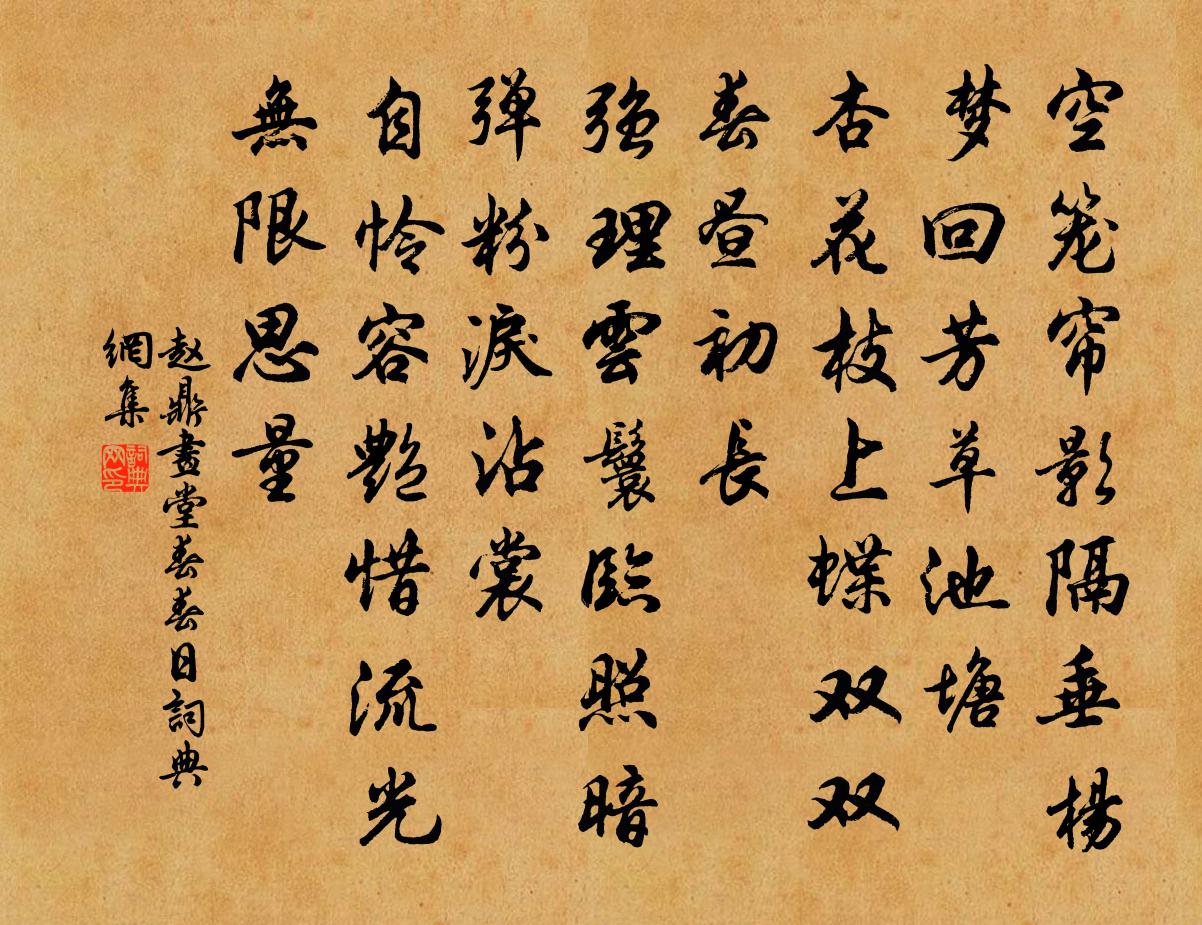 空笼帘影隔垂楊
梦回芳草池塘
杏花枝上蝶双双
春昼初長
强理雲鬟臨照暗
弹粉淚沾裳
自怜容艷惜流光
無限思量
赵鼎畫堂春春日詞典
網集
詞典
网印